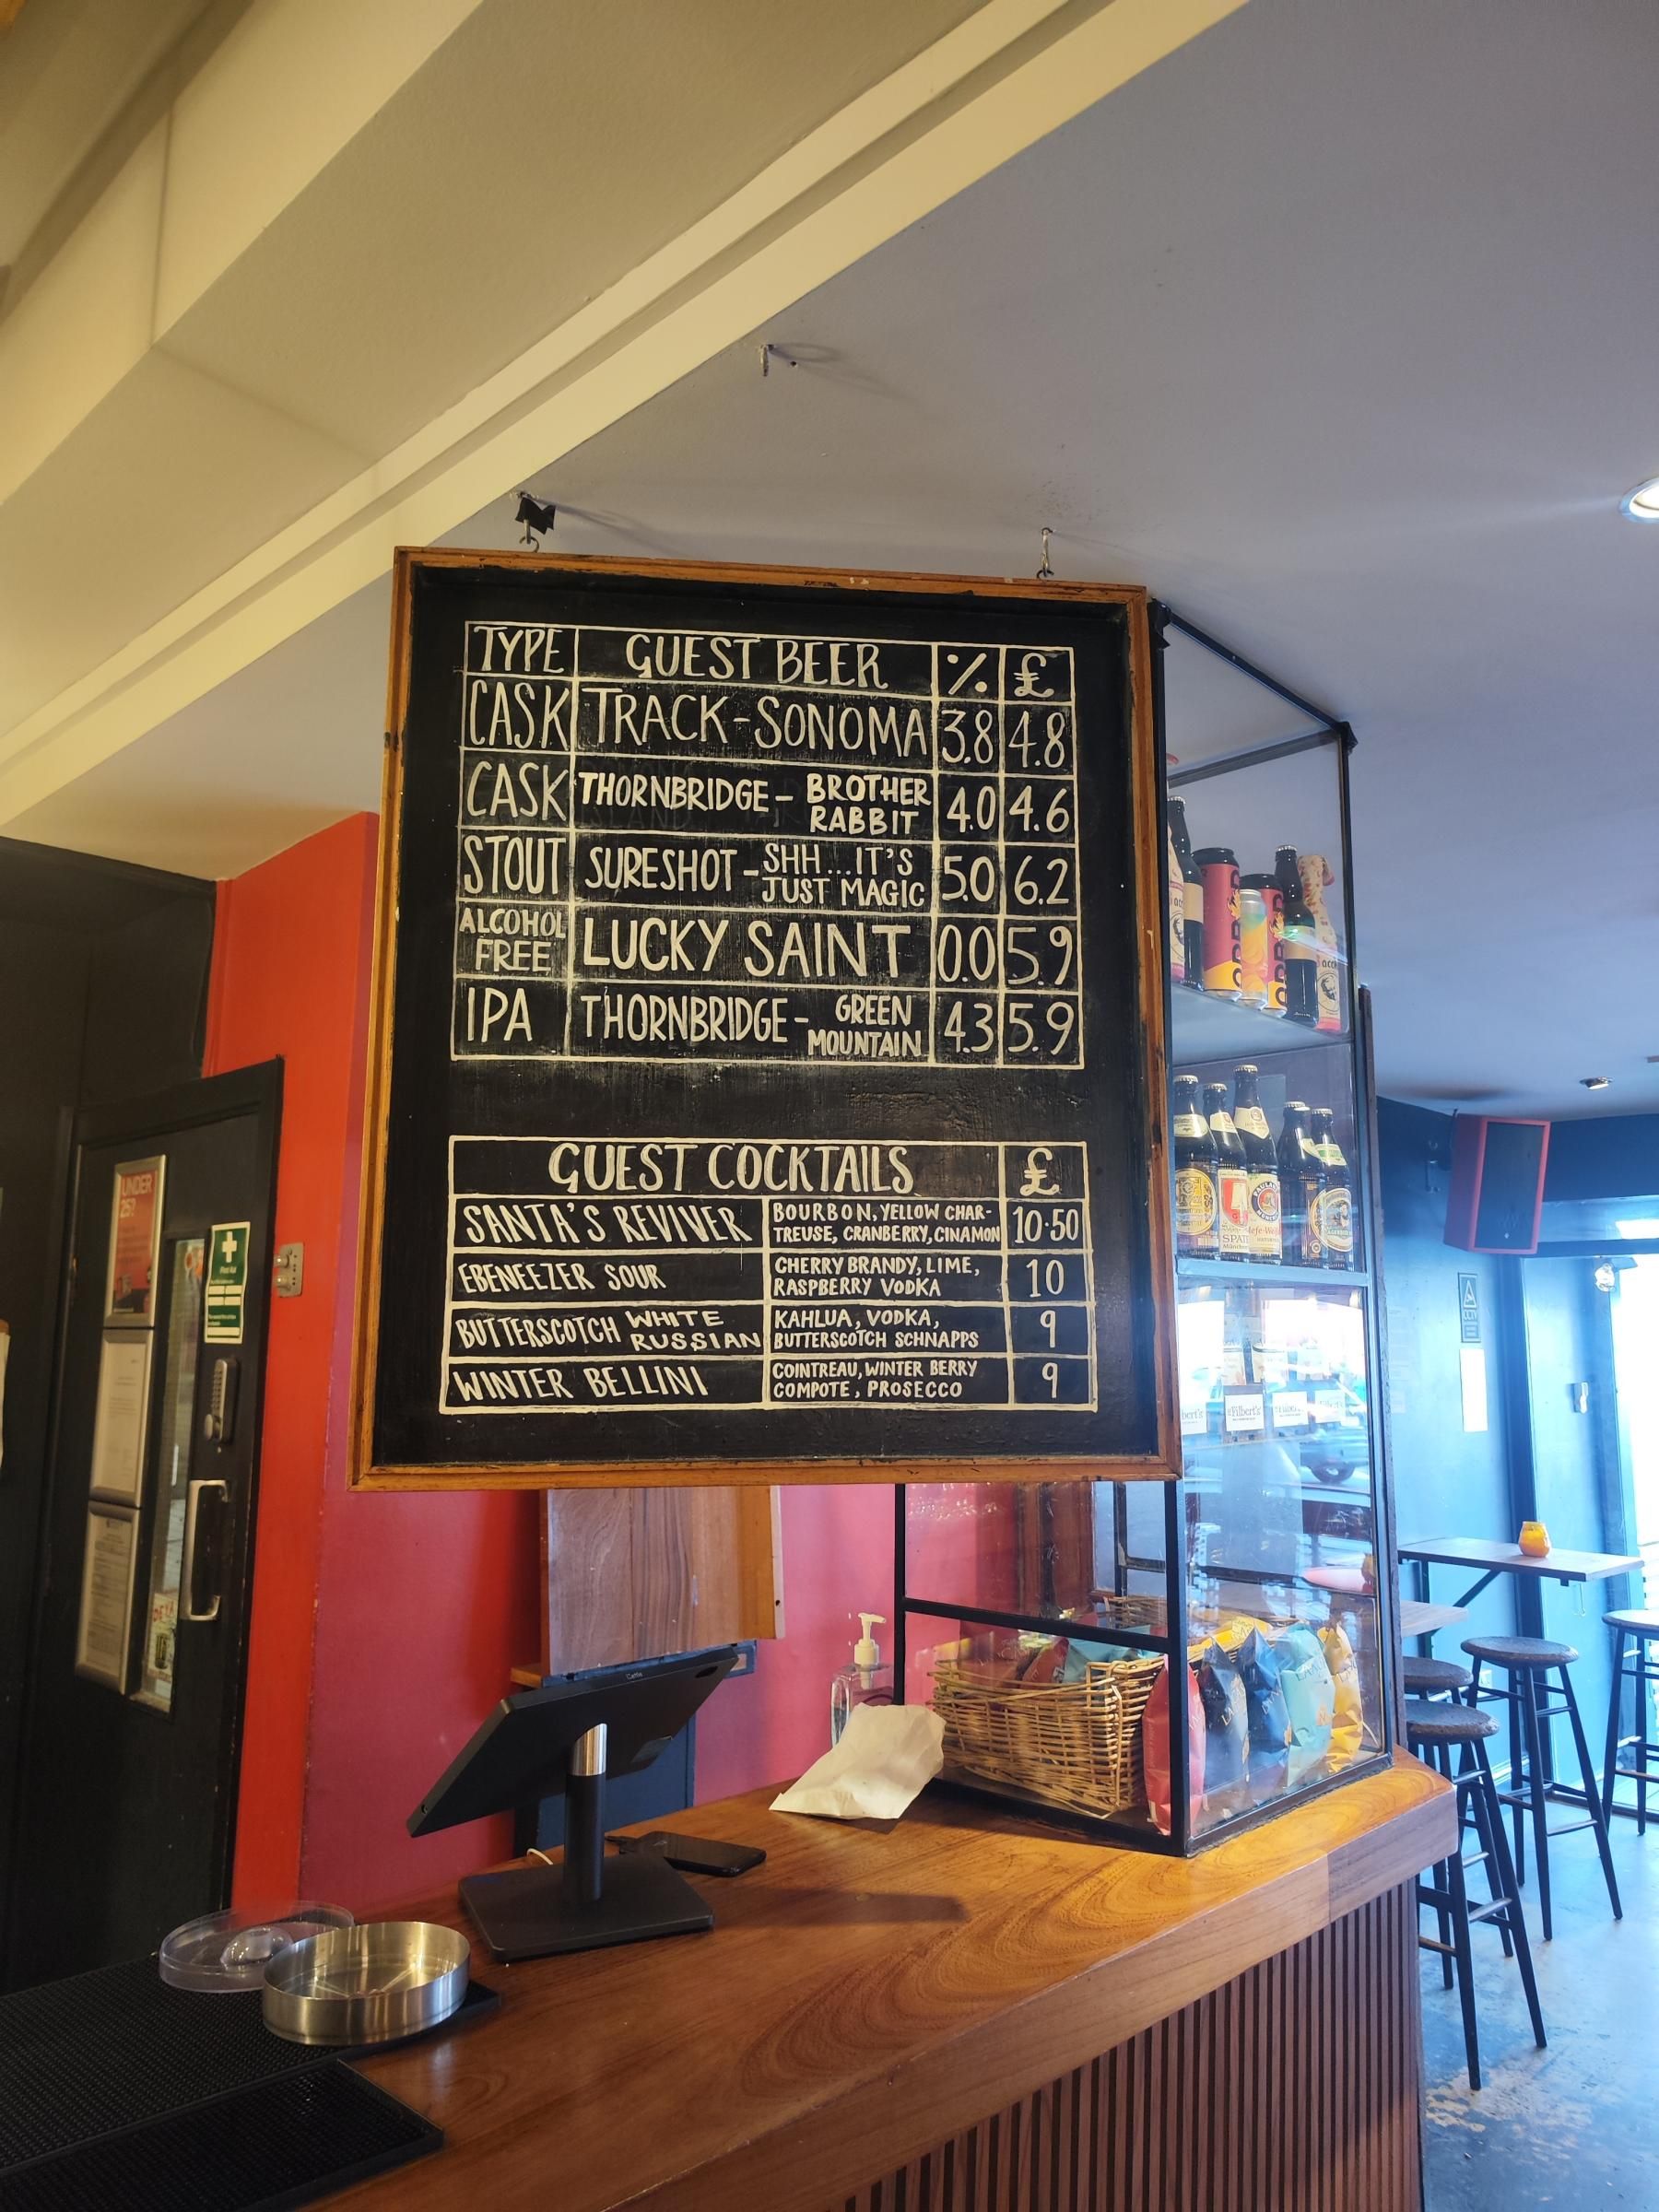 TYPE GUEST BEER % £
CASK TRACK - SONOMA 3.8 4.8
CASK THORNBRIDGE - BROTHER RABBIT 4.0 4.6
STOUT SURESHOT - SHH...IT'S JUST MAGIC 5.0 6.2
ALCOHOL FREE LUCKY SAINT 0.0 5.9
IPA THORNBRIDGE - GREEN MOUNTAIN 4.3 5.9
GUEST COCKTAILS £
SANTA'S REVIVER BOURBON, YELLOW CHAR-
TREUSE, CRANBERRY, CINAMON 10.50
EBENEEZER SOUR CHERRY BRANDY, LIME,
RASPBERRY VODKA 10
BUTTERSCOTCH WHITE RUSSIAN KAHLUA, VODKA,
BUTTERSCOTCH SCHNAPPS 9
WINTER BELLINI COINTREAU, WINTER BERRY
COMPOTE, PROSECCO 9
UNDER
25?
First Aid
Filbert's